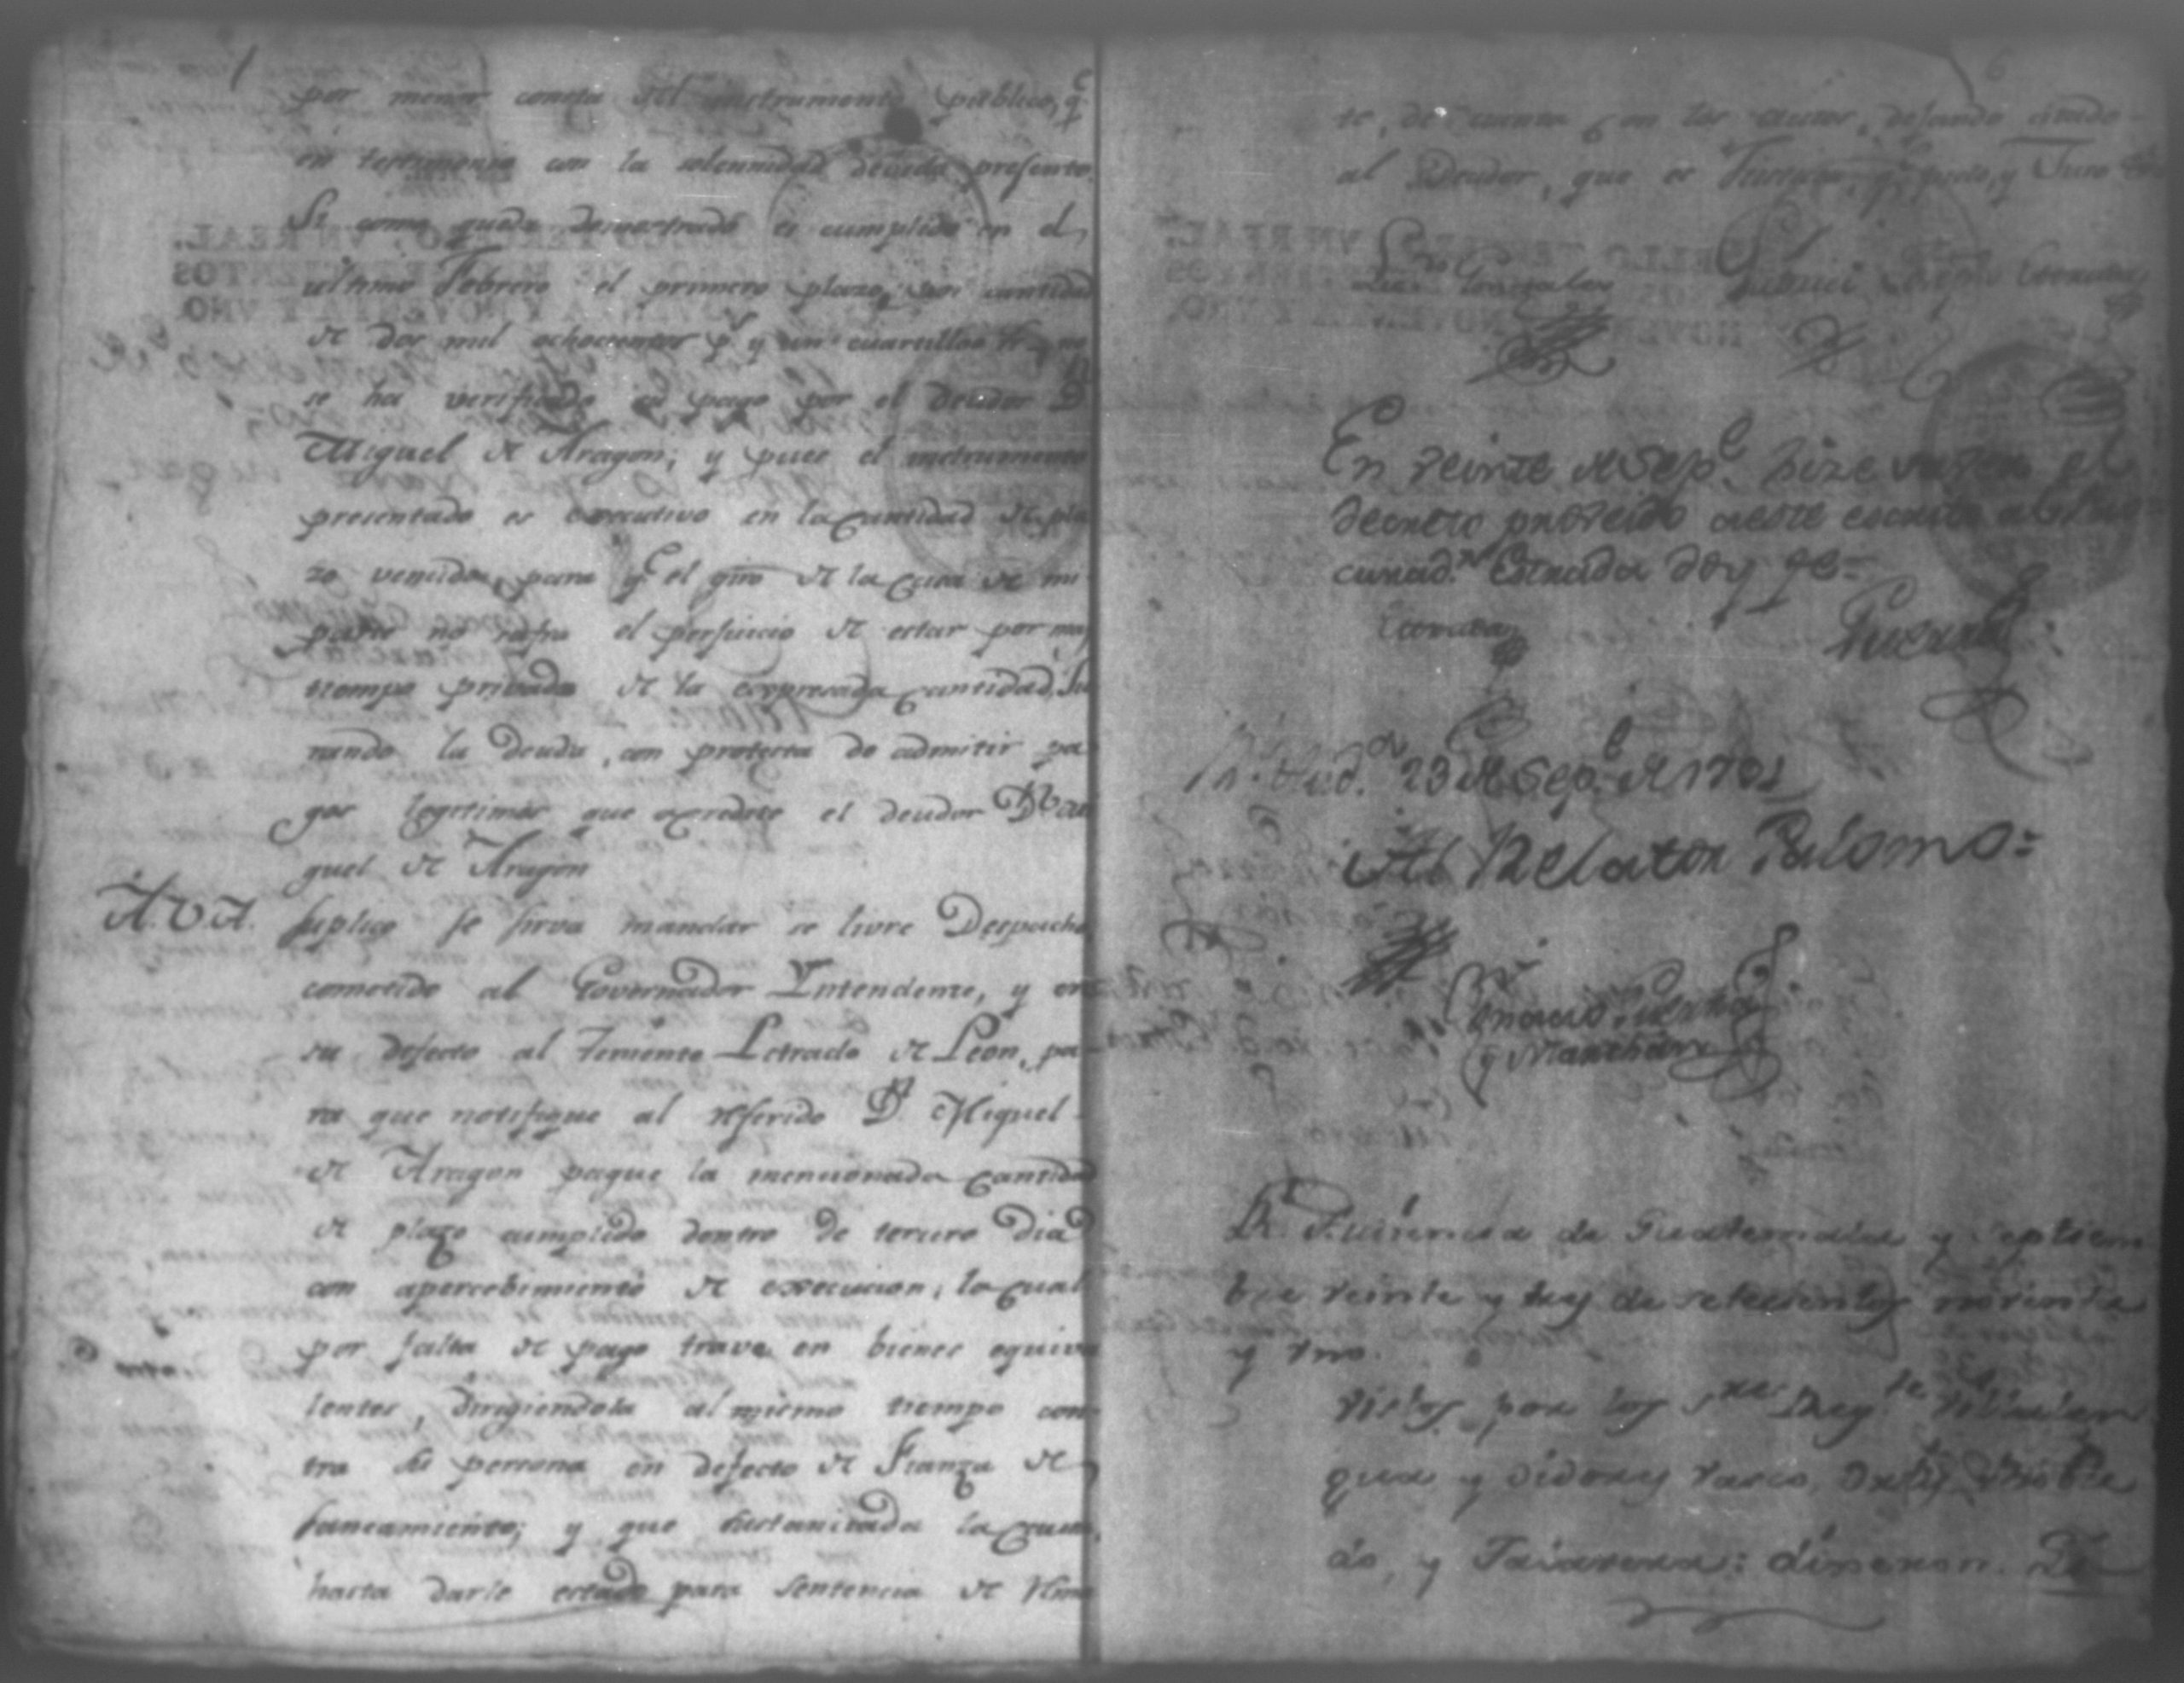 por menor consta del instrumento publico, q.e
en testimonio con la solemnidad devida presento.
Si como queda demostrado es cumplido en el
ultimo Febrero el primero plazo, por cantidad
de dos mil ochocientos p.s y un cuartillo no
se ha verificado su pago por el deudor D.n
Miguel de Aragon; y pues el instrumento
presentado es executivo en la cantidad de pla
zo vencido, para q.e el giro de la Casa de mi
parte no sufra el perjuicio de estar por mas
tiempo privada de la expresada cantidad, Ju
rando la deuda, con protexta de admitir pa
gos legitimos que acredite el deudor D.n Mi
guel de Aragon
A.V.A. Suplico se sirva mandar se livre Despacho
cometido al Governador Yntendente, y en
su defecto al Teniente Letrado de Leon, pa
ra que notifique al referido D.n Miguel
de Aragon pague la mencionada Cantidad
de plazo cumplido dentro de tercero Dia
con apercebimiento de execucion; la qual
por falta de pago trave en bienes equiva
lentes, dirigiendola al mismo tiempo con
tra su persona en defecto de Fianza de
Saneamiento; y que sustanciada la Causa,
hasta darle estado para Sentencia de Rema
te, de cuenta con los autos, dejando citado
al Deudor, que es Justicia, q.e pido, y Juro
Gonzales Miguel Estrada
En veinte de Sep.e hize saver el
decreto proveido a este escrito al Pro
curad.r Estrada doy fe=
Estrada
23 de Sep.e de 1791
Al Relator Palomo=
Ignacio Guerra
y Marchan
R.l Audiencia de Guatemala y Septiem
bre veinte y tres de setecientos noventa
y uno.
Vistos por los S.res Reg.te
y Oidores
y Talavera: dixeron. De